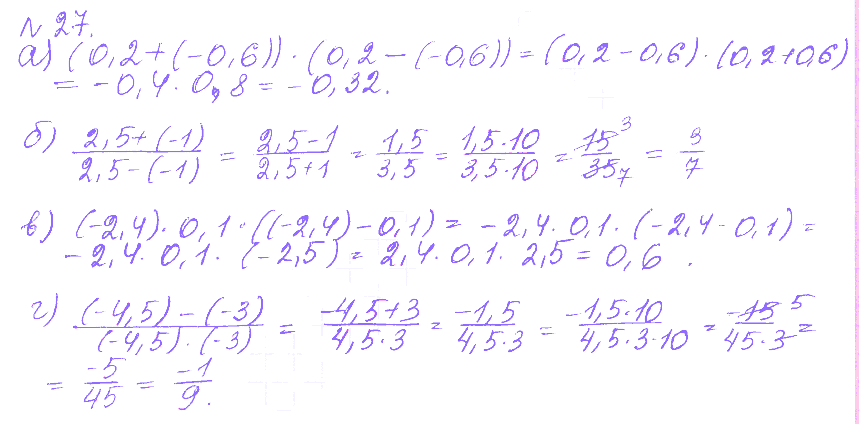 № 27.
а) (0,2+(-0,6))·(0,2-(-0,6))=(0,2-0,6)·(0,2+0,6)
=-0,4·0,8=-0,32.
б) (2,5+(-1))/(2,5-(-1)) = (2,5-1)/(2,5+1) = 1,5/3,5 = (1,5·10)/(3,5·10) = 15 3/35 7 = 3/7
в) (-2,4)·0,1·((-2,4)-0,1)= -2,4·0,1·(-2,4-0,1)=
-2,4·0,1·(-2,5)=2,4·0,1·2,5=0,6.
г) ((-4,5)-(-3))/((-4,5)·(-3)) = (-4,5+3)/(4,5·3) = -1,5/(4,5·3) = (-1,5·10)/(4,5·3·10) = -15 5/(45·3) =
= -5/45 = -1/9.